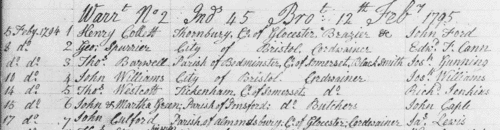 Warrt. No 2 Ind 45 Brot. 12th Feby 1795
5 Feby. 1794 1 Henry Collett Thornbury, C. of Glocester Brazier & John Ford
8 do 2 Geo. Spurrier City of Bristol Cordwainer Edwd. T. Cann
do do 3 Thos. Bagwell Parish of Bedminster, C. of Somerset, Blacksmith Jos. Gunning
10 do 4 John Williams City of Bristol Cordwainer Jos. Williams
14 do 5 Thos. Westcott Tickenham, C. of Somerset do Richd. Jenkins
15 do 6 John & Martha Green; Parish of Butchers John Caple
17 do 7 John Parish of Almondsbury C. of Glocester; Cordwainer Jas. Lewis